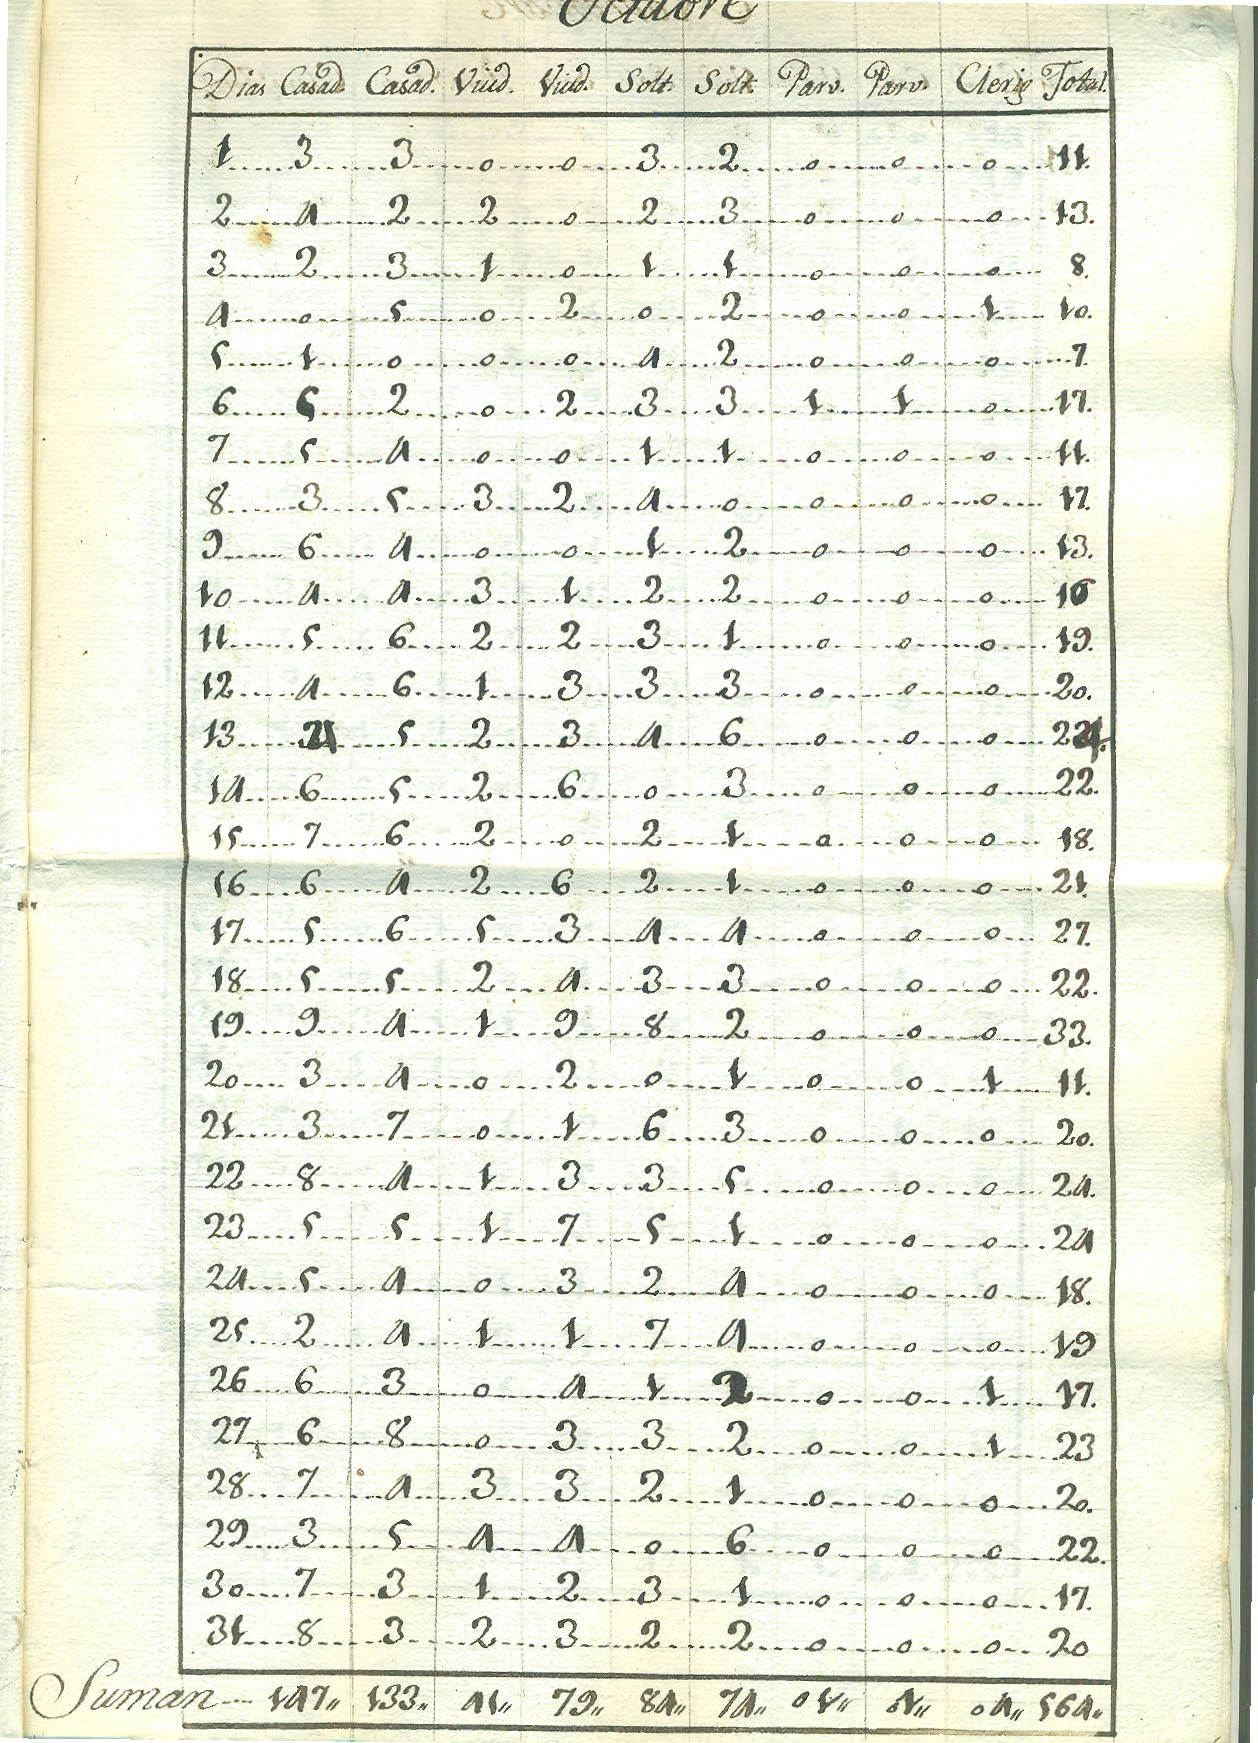 Octubre
Dias Casad. Casad. Viud. Viud. Solt. Solt. Parv. Parv. Clerig Total.
1 3 3 0 0 3 2 0 0 0 11.
2 4 2 2 0 2 3 0 0 0 13.
3 2 3 1 0 1 1 0 0 0 8.
4 0 5 0 2 0 2 0 0 1 10.
5 1 0 0 0 4 2 0 0 0 7
6 5 2 0 2 3 3 1 1 0 17.
7 5 4 0 0 1 1 0 0 0 11.
8 3 5 3 2 4 0 0 0 0 17.
9 6 4 0 0 1 2 0 0 0 13.
10 4 4 3 1 2 2 0 0 0 16
11 5 6 2 2 3 1 0 0 0 19.
12 4 6 1 3 3 3 0 0 0 20.
13 4 5 2 3 4 6 0 0 0 24.
14 6 5 2 6 0 3 0 0 0 22.
15 7 6 2 0 2 1 0 0 0 18.
16 6 4 2 6 2 1 0 0 0 21.
17 5 6 5 3 4 4 0 0 0 27.
18 5 5 2 4 3 3 0 0 0 22.
19 9 4 1 9 8 2 0 0 0 33.
20 3 4 0 2 0 1 0 0 1 11.
21 3 7 0 1 6 3 0 0 0 20.
22 8 4 1 3 3 5 0 0 0 24.
23 5 5 1 7 5 1 0 0 0 24
24 5 4 0 3 2 4 0 0 0 18.
25 2 4 1 1 7 4 0 0 0 19
26 6 3 0 4 1 2 0 0 1 17.
27 6 8 0 3 3 2 0 0 1 23
28 7 4 3 3 2 1 0 0 0 20.
29 3 5 4 4 0 6 0 0 0 22.
30 7 3 1 2 3 1 0 0 0 17.
31 8 3 2 3 2 2 0 0 0 20
Suman 147,, 133,, 41,, 79,, 84,, 74,, 01,, 01,, 04,, 564,,